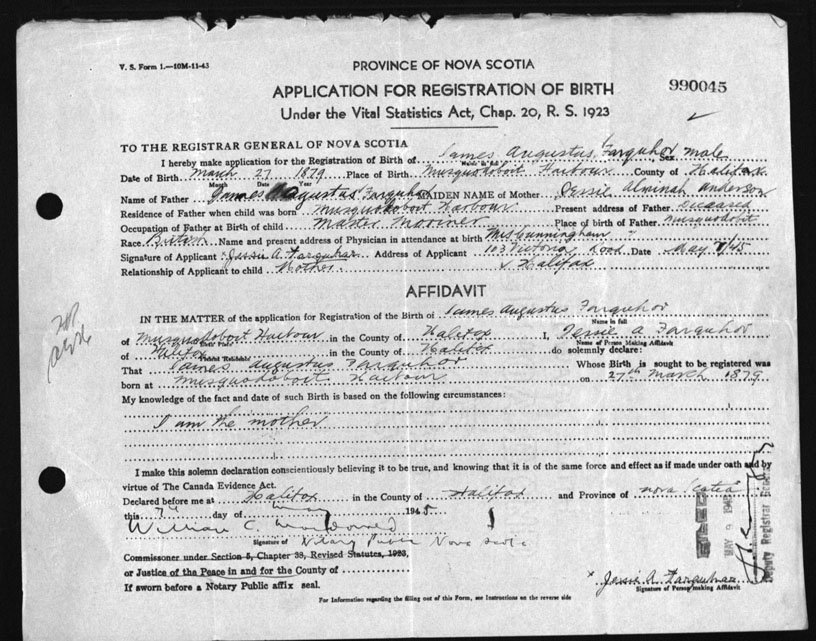 V. S. Form 1.—10M-11-43
PROVINCE OF NOVA SCOTIA
APPLICATION FOR REGISTRATION OF BIRTH
990045
Under the Vital Statistics Act, Chap. 20, R. S. 1923
TO THE REGISTRAR GENERAL OF NOVA SCOTIA
I hereby make application for the Registration of Birth of James Augustus Farquhar Sex male
Name in full
Date of Birth March 27 1879 Place of Birth Musquodoboit Harbour County of Halifax
Month Date Year
Name of Father James Augustus Farquhar MAIDEN NAME of Mother Jessie Alminah Anderson
Residence of Father when child was born Musquodoboit Harbour Present address of Father Deceased
Occupation of Father at Birth of child Master Mariner Place of birth of Father Musquodobit
Race Briton Name and present address of Physician in attendance at birth Mrs Cunningham
Signature of Applicant Jessie A. Farquhar Address of Applicant 103 Victoria Road Date May 7/45
Relationship of Applicant to child Mother. Halifax
AFFIDAVIT
IN THE MATTER of the application for Registration of the Birth of James Augustus Farquhar
Name in full
of Musquodoboit Harbour in the County of Halifax I, Jessie A Farquhar
Name of Person Making Affidavit
of Halifax in the County of Halifax do solemnly declare:
That James Augustus Farquhar Whose Birth is sought to be registered was
born at Musquodoboit Harbour on 27th March 1879
My knowledge of the fact and date of such Birth is based on the following circumstances:
I am the mother
I make this solemn declaration conscientiously believing it to be true, and knowing that it is of the same force and effect as if made under oath and by
virtue of The Canada Evidence Act.
Declared before me at Halifax in the County of Halifax and Province of Nova Scotia
this 7th day of May 1945
William C.
Signature of Notary Public Nova Scotia
Commissoner under Section 5, Chapter 38, Revised Statutes, 1923,
or Justice of the Peace in and for the County of
If sworn before a Notary Public affix seal.
MAY 9
Deputy Registrar General
x Jessie A. Farquhar
Signature of Person Making Affidavit
For Information regarding the filling out of this Form, see Instructions on the reverse side